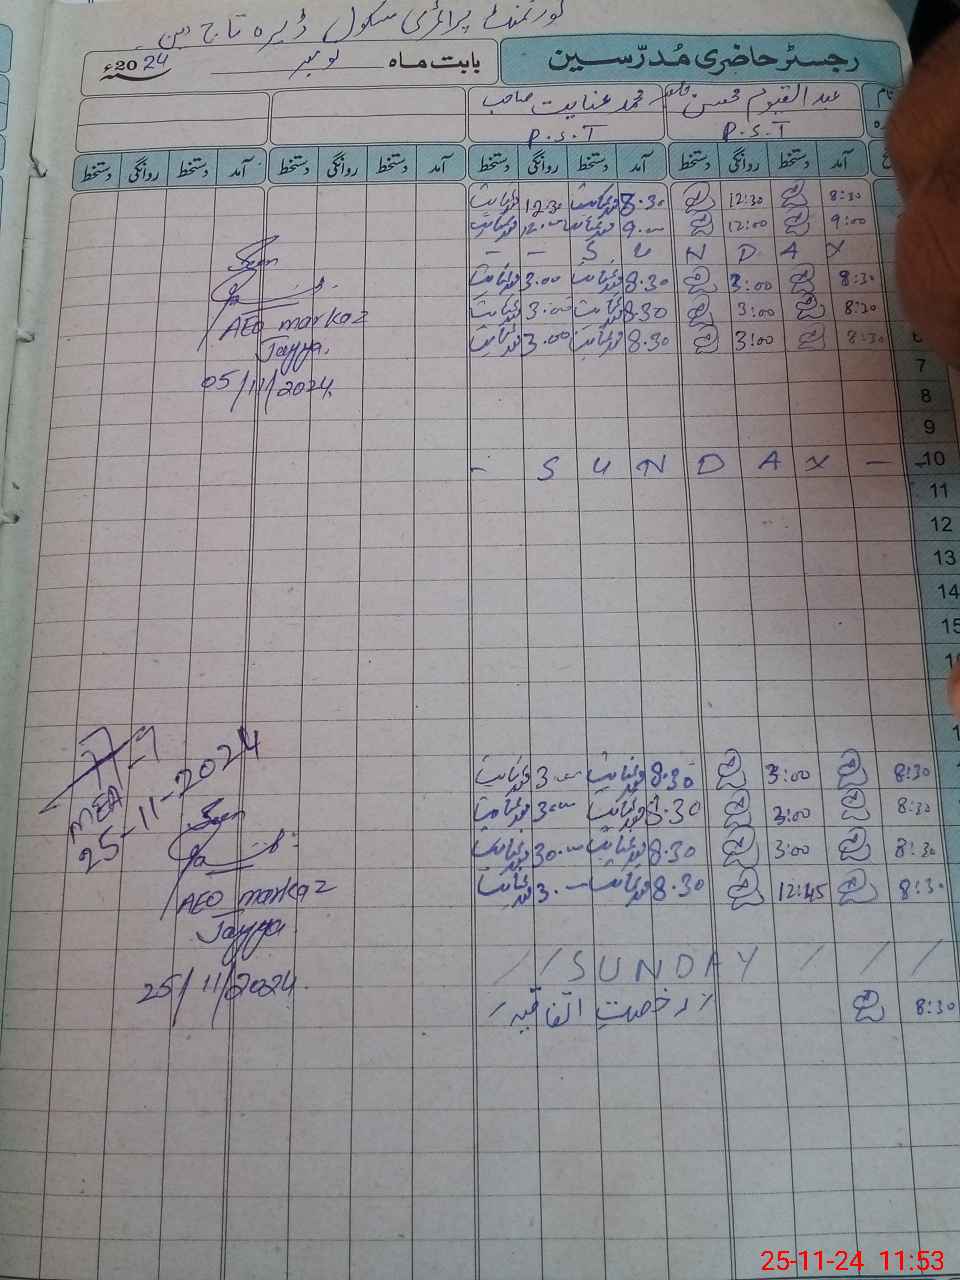 گورنمنٹ پرائمری سکول ڈیرہ تاج دین
رجسٹر حاضری مُدرّسین
بابت ماہ نومبر 2024ء
عبدالقیوم محسن صاحب محمد عنایت صاحب
P.S.T P.S.T
آمد دستخط روانگی دستخط آمد دستخط روانگی دستخط آمد دستخط روانگی دستخط آمد دستخط روانگی دستخط
8:30 12:30 8.30 12.30
9:00 12:00 9.00 12.00
- - S U N D A Y
8:30 3:00 8.30 3.00
8:30 3:00 8.30 3.00
6 8:30 3:00 8.30 3.00
7
8
9
10 - S U N D A Y - -
11
12
13
14
15
8:30 3:00 8.30 3.00
8:30 3:00 8.30 3.00
8:30 3:00 8.30 30.00
8:30 12:45 8.30 3.00
/ / S U N D A Y / / /
8:30 رخصت اتفاقیہ
Seen
AEO markaz
Jayya.
05/11/2024
MEA
25-11-2024
Seen
AEO markaz
Jayya.
25/11/2024.
25-11-24 11:53